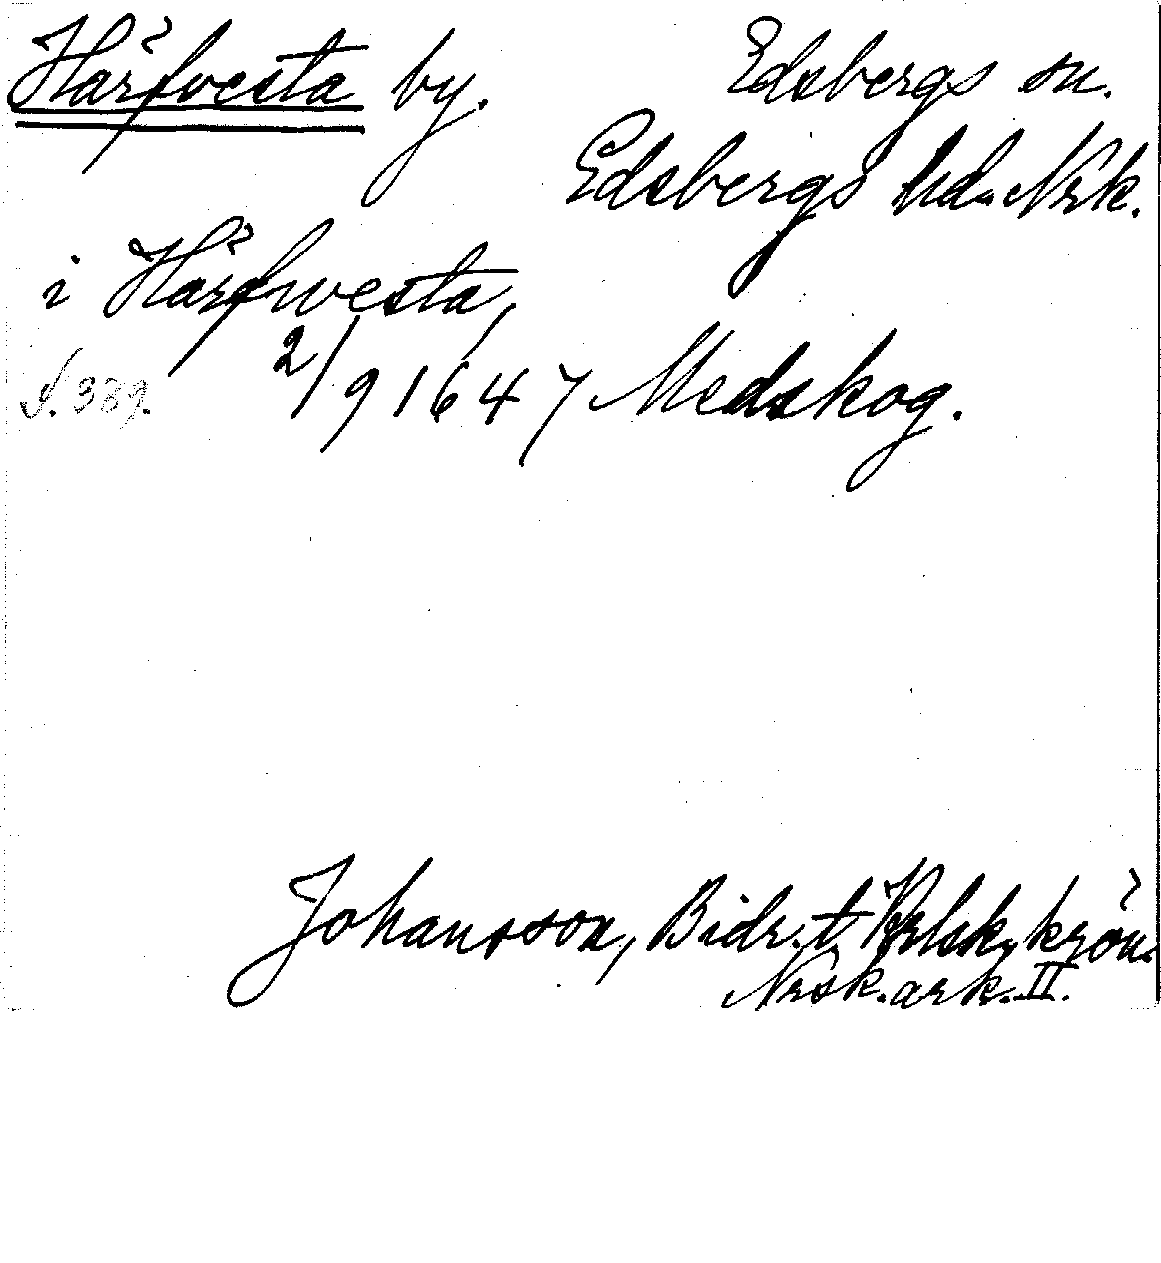 Härfvesta by. Edsbergs sn.
Edsbergs hd. Nrk.
i Härfwesta,
S. 389. 2/9 1647 Medskog.
Johansson, Bidr. t. Krlsk. krön.
Nrsk. ark. II.